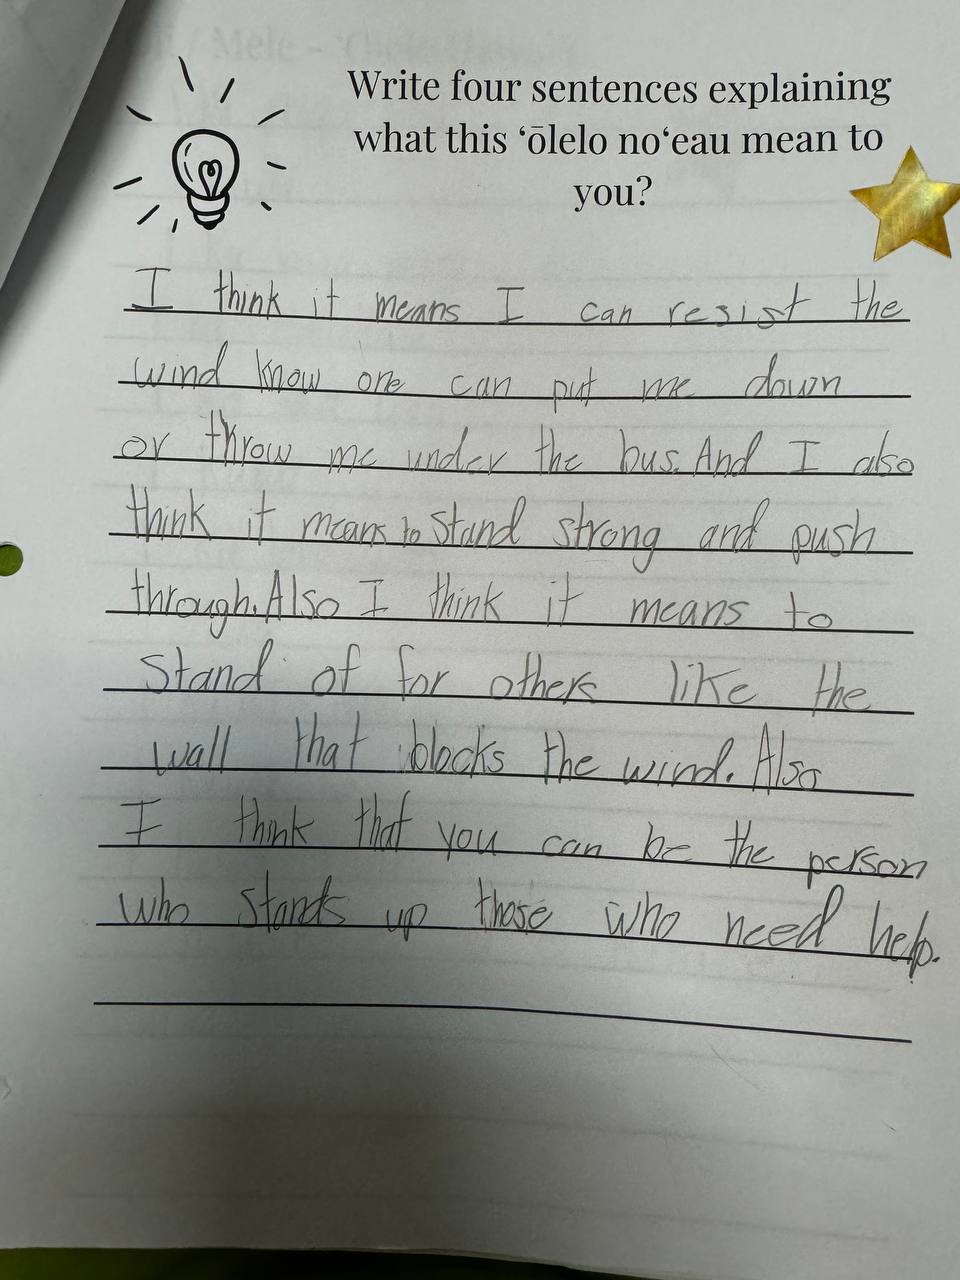 Write four sentences explaining
what this ʻōlelo noʻeau mean to
you?
I think it means I can resist the
wind know one can put me down
or throw me under the bus. And I also
think it means to Stand strong and push
through. Also I think it means to
Stand of for others like the
wall that blocks the wind. Also
I think that you can be the person
who stands up those who need help.